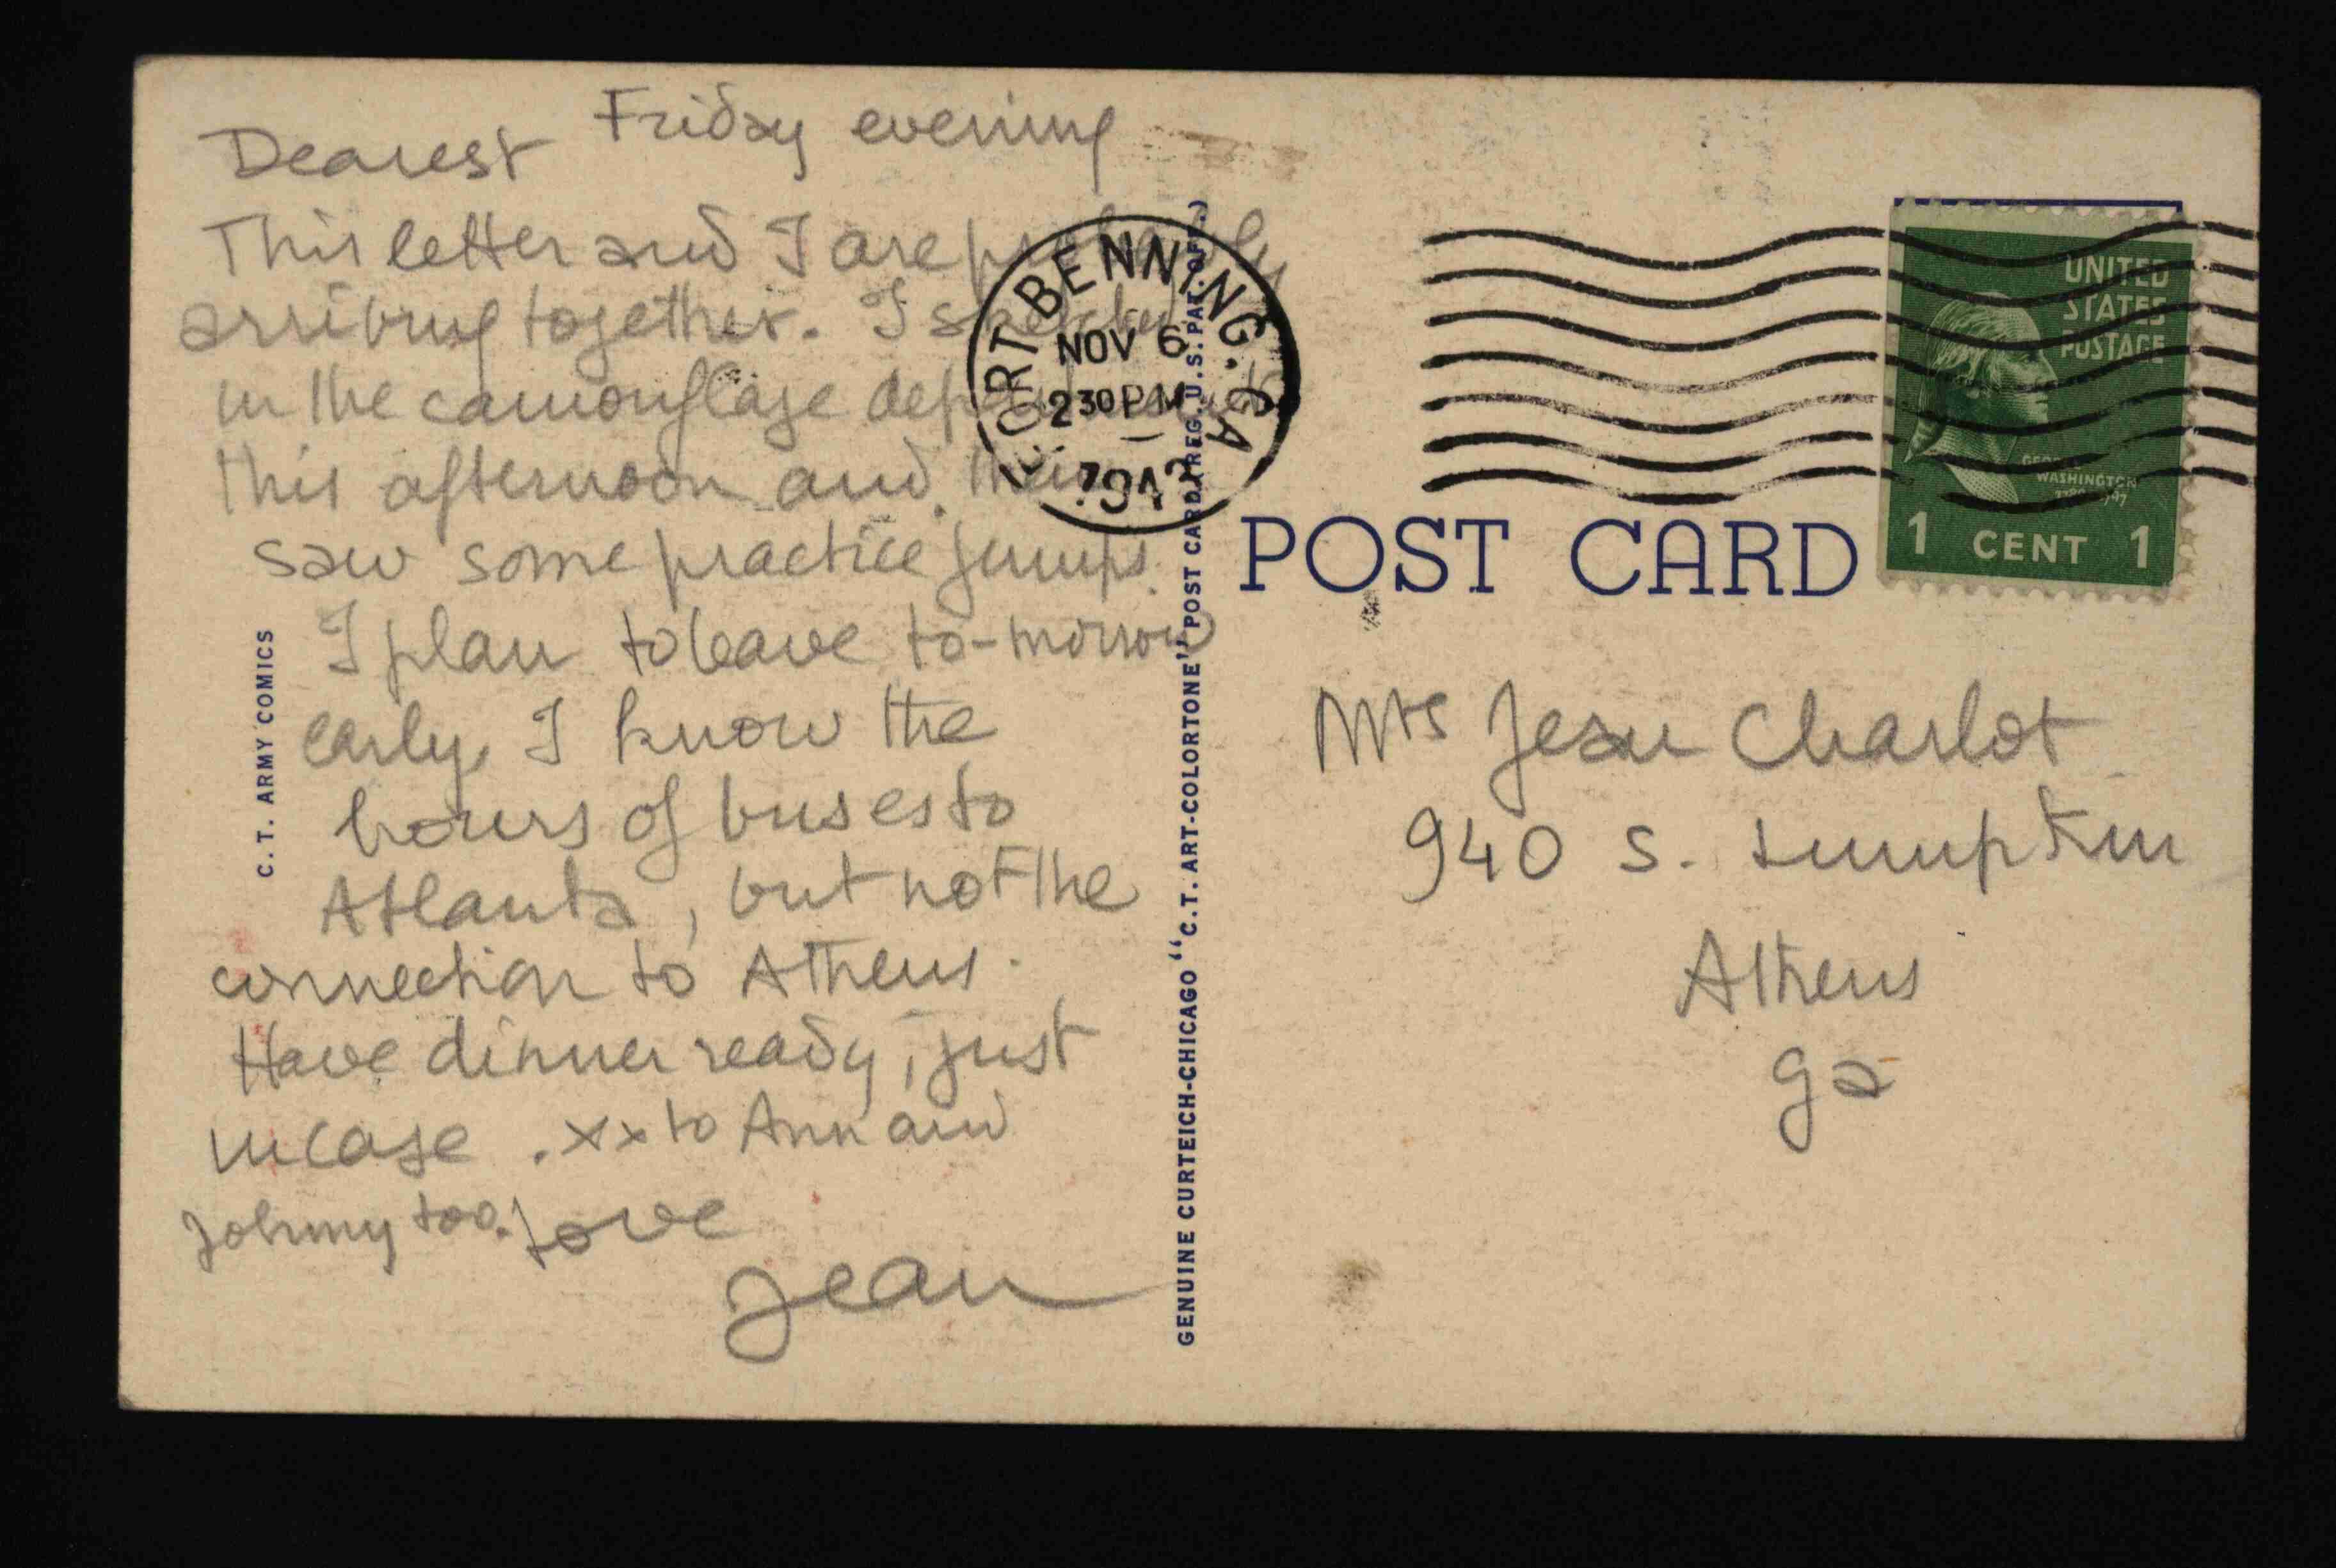 Friday evening
Dearest
This letter and I are probably
arriving together. I sketched
in the camouflage
this afternoon and then
saw some practice jumps.
I plan to leave to-morrow
early. I know the
hours of buses to
Atlanta, but not the
connection to Athens.
Have dinner ready, just
in case. xx to Ann and
Johnny too. Love
Jean
C. T. ARMY COMICS
GENUINE CURTEICH-CHICAGO "C. T. ART-COLORTONE" POST CARD (REG. U. S. PAT. OFF.)
FORT BENNING, GA.
NOV 6
2 30 PM
194
POST CARD
UNITED
STATES
POSTAGE
GEORGE
WASHINGTON
1789-1797
1 CENT 1
Mrs Jean Charlot
940 S. Lumpkin
Athens
Ga